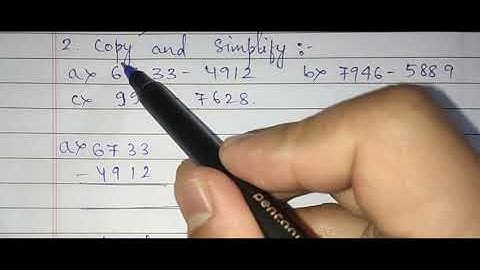 2. Copy and Simplify :-
a) 6 33 - 4912 b) 7946 - 5889
c) 99 7628.
a) 6733
- 4912
pentonic